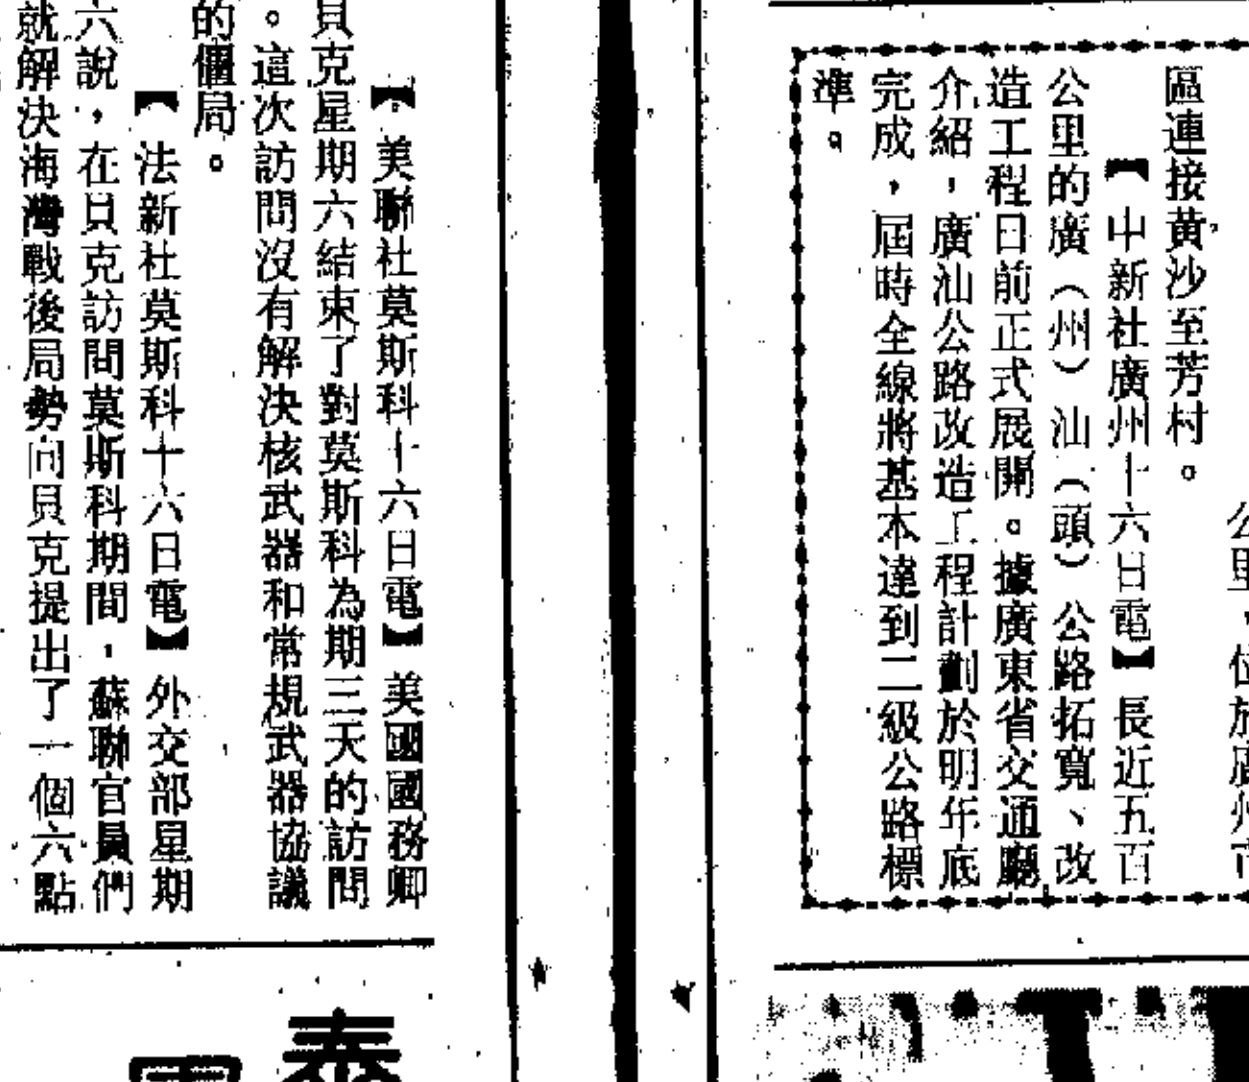 公里，位於廣州市
區連接黃沙至芳村。
【中新社廣州十六日電】長近五百
公里的廣（州）汕（頭）公路拓寬、改
造工程日前正式展開。據廣東省交通廳
介紹，廣汕公路改造工程計劃於明年底
完成，屆時全線將基本達到二級公路標
準。
【美聯社莫斯科十六日電】美國國務卿
貝克星期六結束了對莫斯科為期三天的訪問
。這次訪問沒有解決核武器和常規武器協議
的僵局。
【法新社莫斯科十六日電】外交部星期
六說，在貝克訪問莫斯科期間，蘇聯官員們
就解決海灣戰後局勢向貝克提出了一個六點
泰